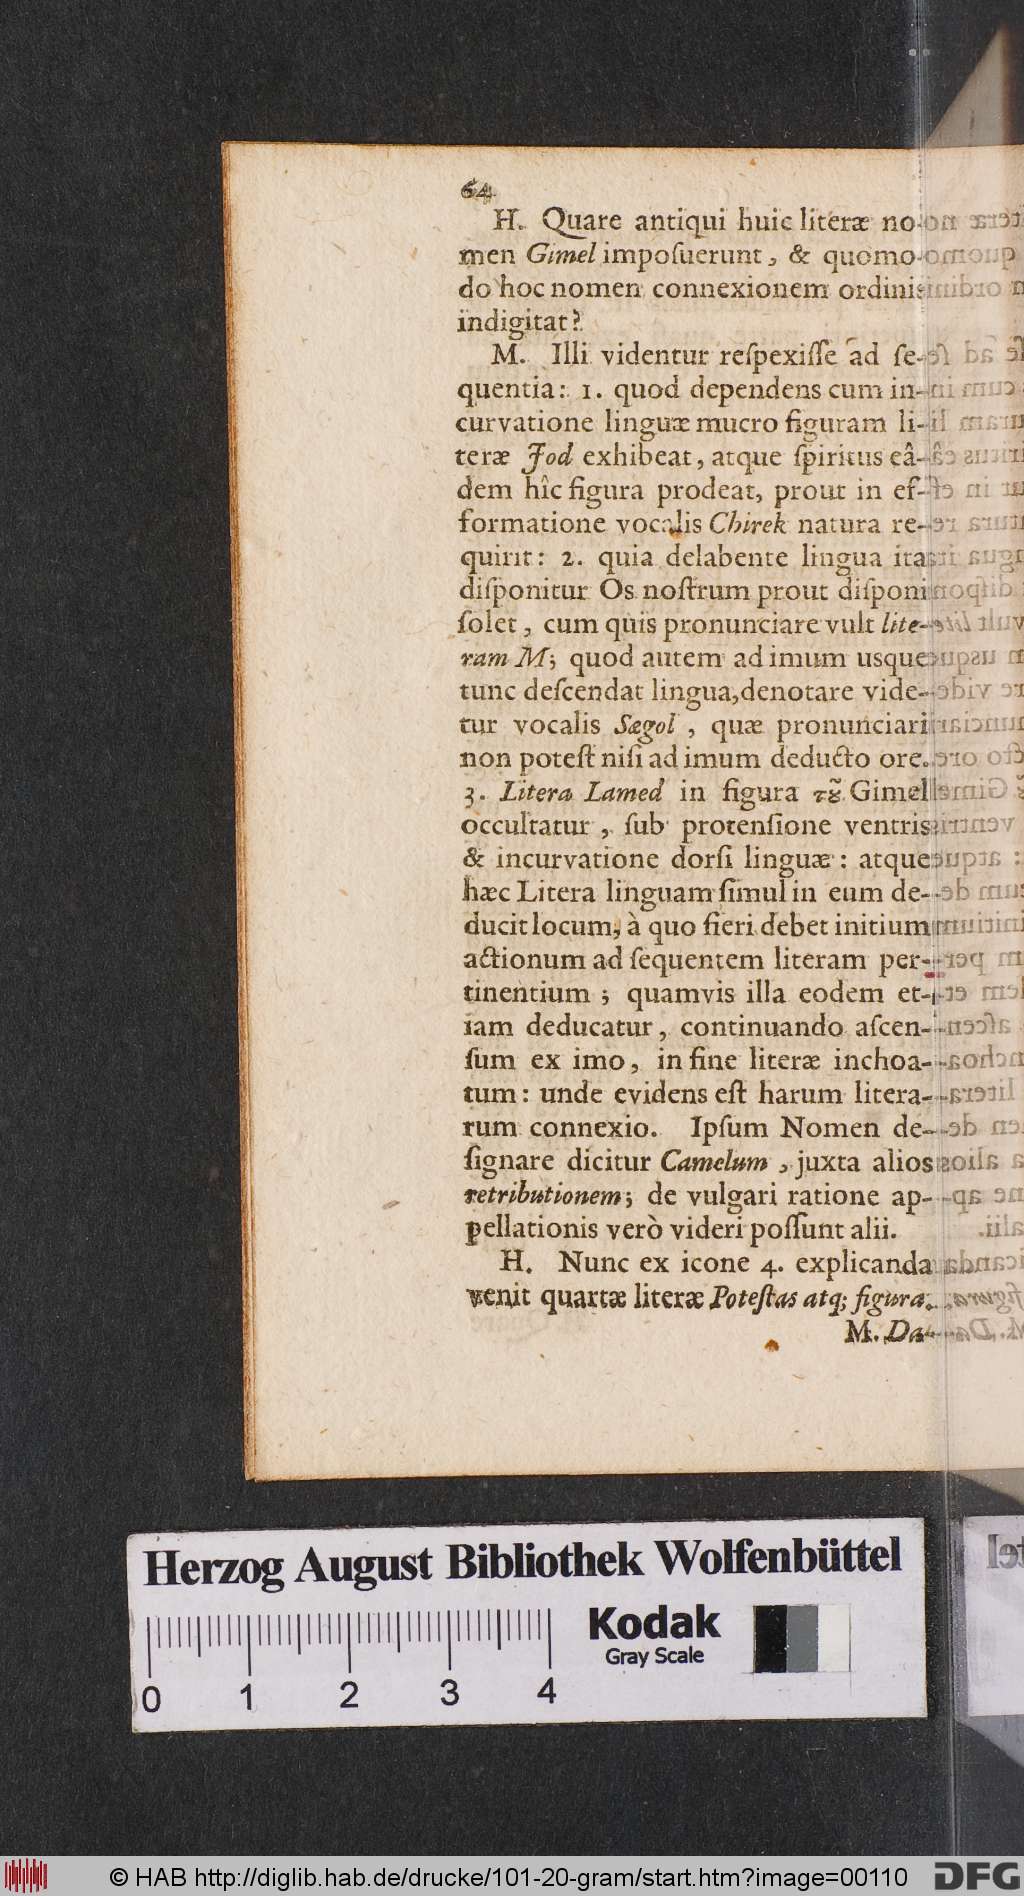 64
H. Quare antiqui huic literæ no-
men Gimel imposuerunt, & quomo-
do hoc nomen connexionem ordinis
indigitat?
M. Illi videntur reſpexiſſe ad ſe-
quentia: 1. quod dependens cum in-
curvatione linguæ mucro figuram li-
teræ Jod exhibeat, atque ſpiritus eâ-
dem hîc figura prodeat, prout in ef-
formatione vocalis Chirek natura re-
quirit: 2. quia delabente lingua ita
diſponitur Os noſtrum prout diſponi
ſolet, cum quis pronunciare vult lite-
ram M; quod autem ad imum usque
tunc deſcendat lingua, denotare vide-
tur vocalis Sægol, quæ pronunciari
non poteſt niſi ad imum deducto ore.
3. Litera Lamed in figura τȣ̃ Gimel
occultatur, ſub protenſione ventris
& incurvatione dorſi linguæ: atque
hæc Litera linguam ſimul in eum de-
ducit locum, à quo fieri debet initium
actionum ad ſequentem literam per-
tinentium; quamvis illa eodem et-
iam deducatur, continuando aſcen-
ſum ex imo, in fine literæ inchoa-
tum: unde evidens eſt harum litera-
rum connexio. Ipſum Nomen de-
ſignare dicitur Camelum, juxta alios
retributionem; de vulgari ratione ap-
pellationis verò videri poſſunt alii.
H. Nunc ex icone 4. explicanda
venit quartæ literæ Poteſtas atq; figura.
M. Da-
Herzog August Bibliothek Wolfenbüttel
Kodak
Gray Scale
0 1 2 3 4
© HAB http://diglib.hab.de/drucke/101-20-gram/start.htm?image=00110
DFG